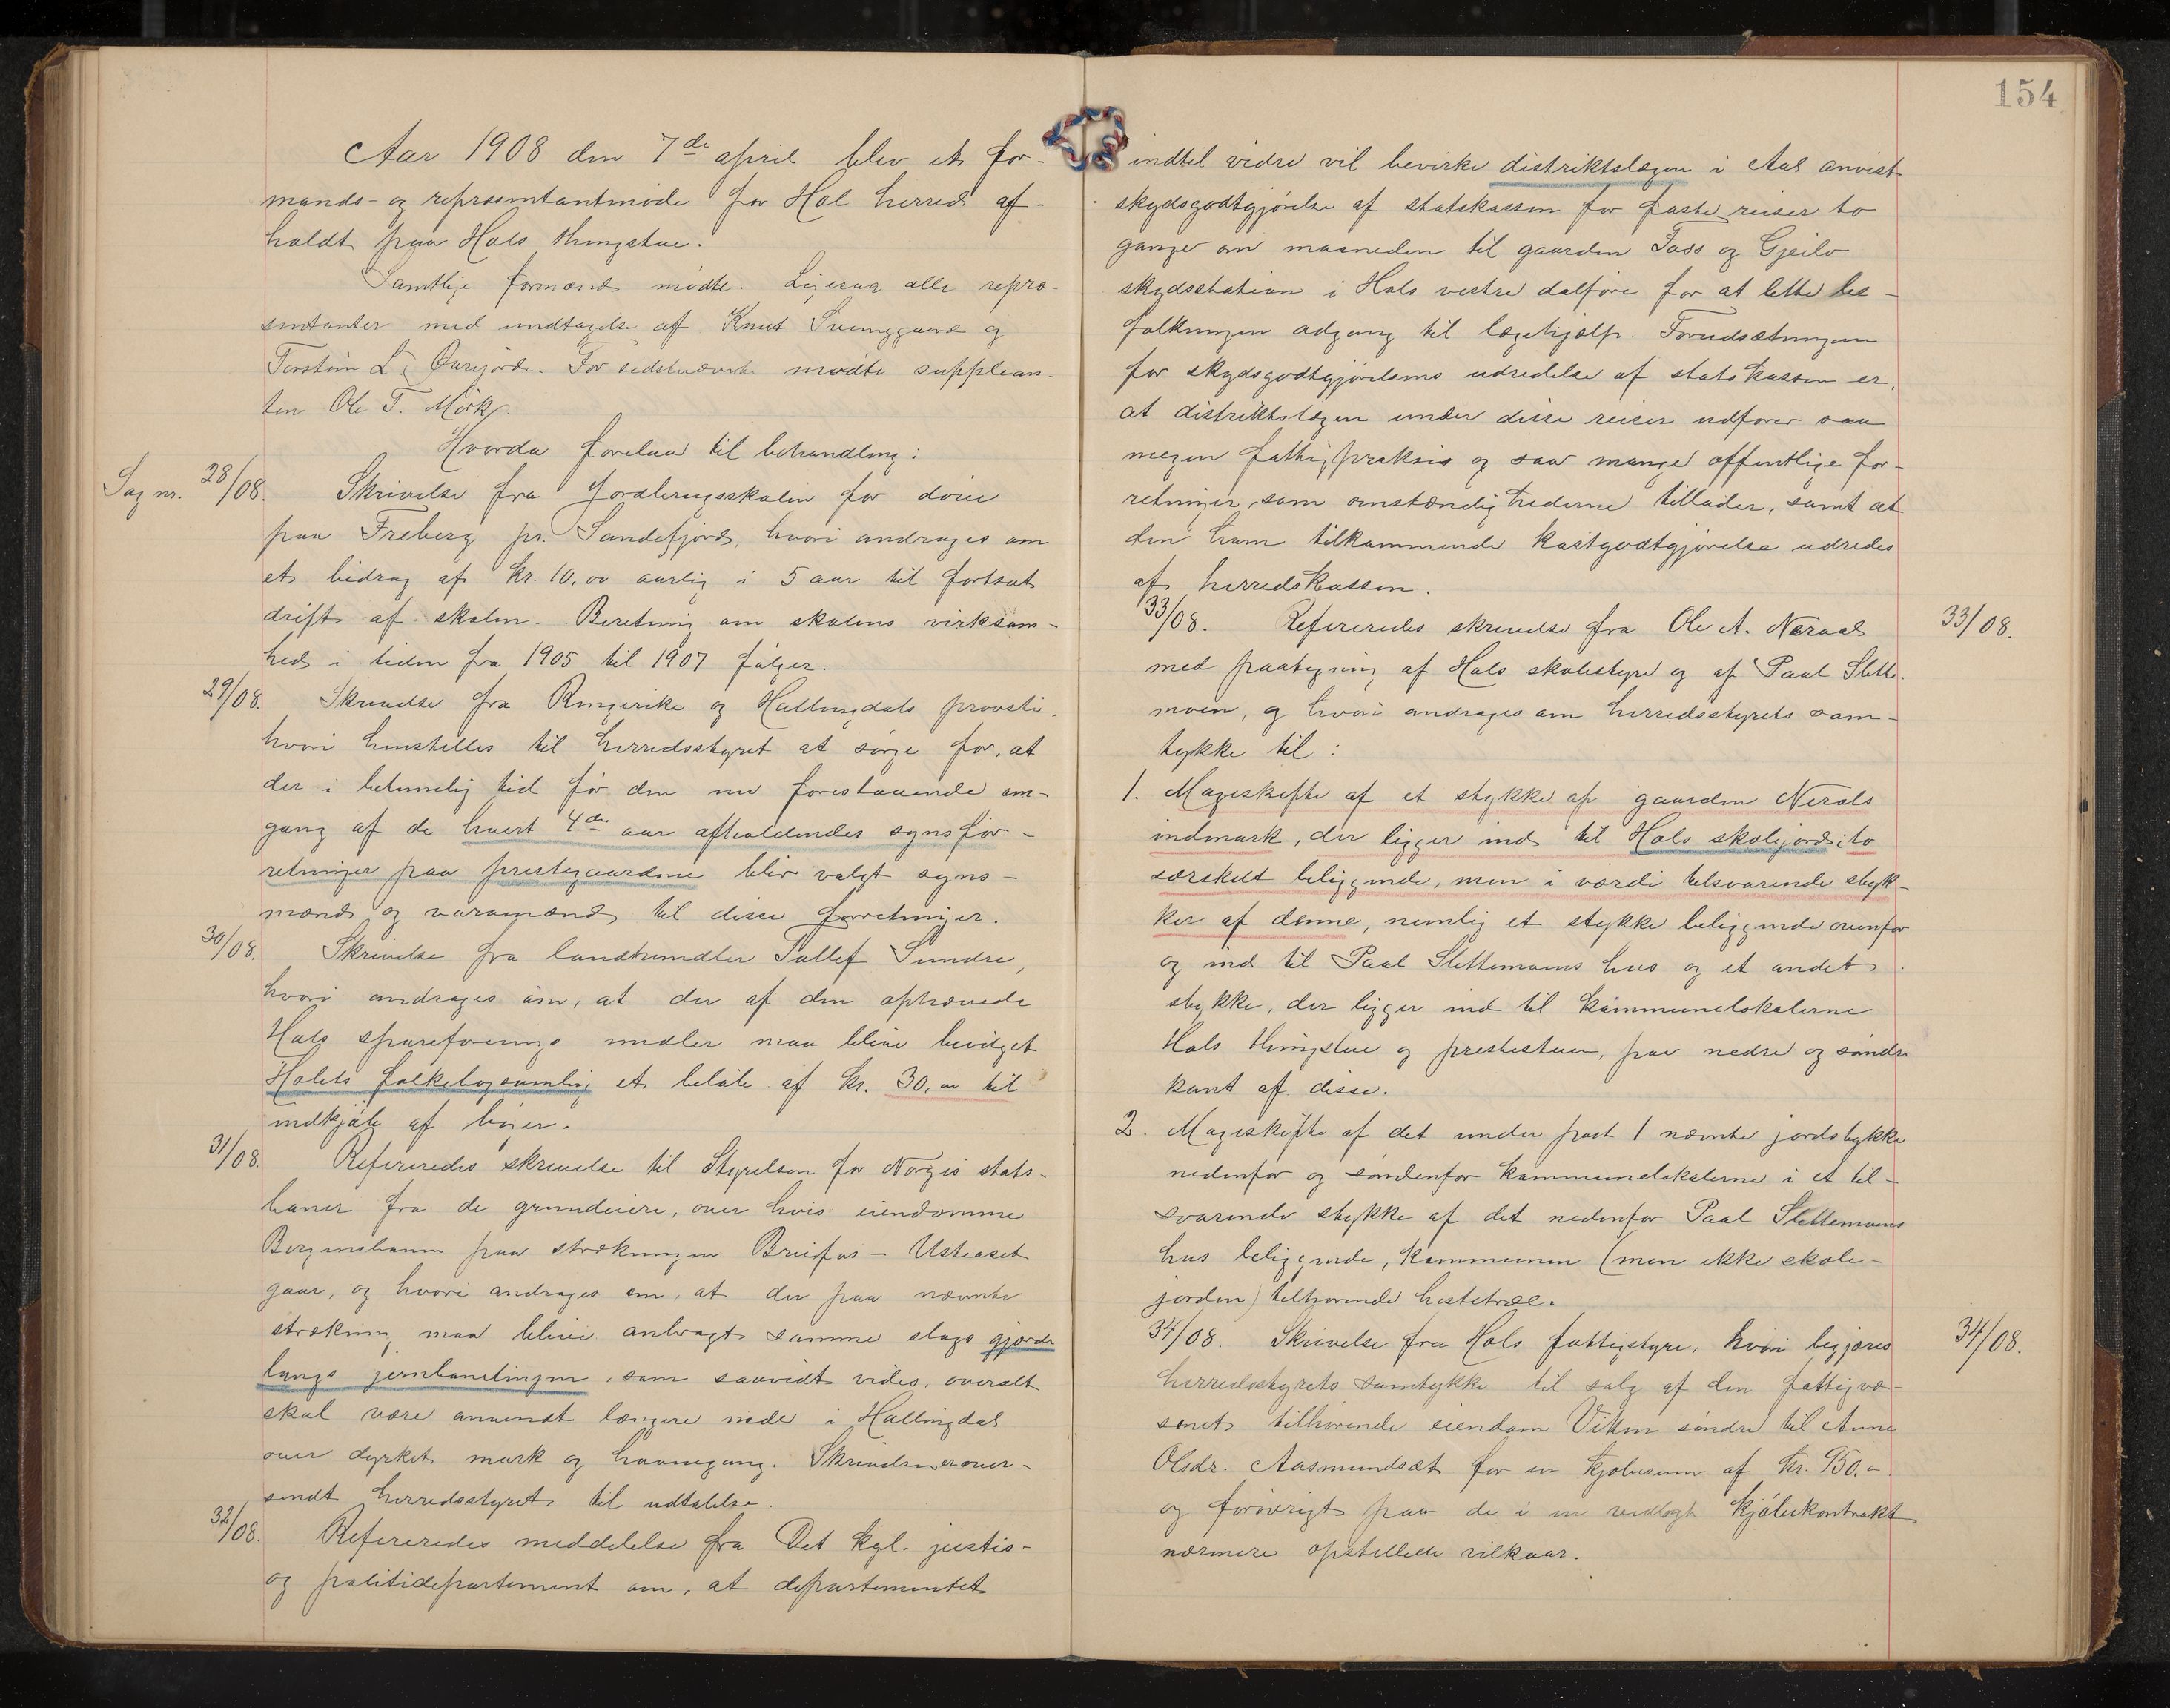 154
Aar 1908 den 7de april blev et for-
mands- og repræsentantmøde for Hol herred af-
holdt paa Hols thingstue.
Samtlige formænd mødte. Ligesaa alle repræ-
sentanter med undtagelse af Knut Sveinggaard og
Torstein L. Øvrejorde. For sidstnævnte mødte supplean-
ten Ole T. Mørk.
Hvorda forelaa til behandling:
Sag nr. 28/08. Skrivelse fra Fordlæringsskolen for døve
paa Freberg pr. Sandefjord, hvori andrages om
et bidrag af kr. 10,00 aarlig i 5 aar til fortsat
drift af skolen. Beretning om skolens virksom-
hed i tiden fra 1905 til 1907 følger.
29/08. Skrivelse fra Ringerike og Hallingdals provsti,
hvori henstilles til herredsstyret at sørge for, at
der i betimelig tid før den nu forestaaende om-
gang af de hvert 4de aar afholdendes synsfor-
retninger paa prestegaardene bliv valgt syns-
mænd og varamænd til disse forretninger.
30/08. Skrivelse fra landhandler Tollef Sundre,
hvori andrages om, at der af den ophævede
Hols spareforenings midler maa blive bevilget
Holets folkebogsamling et beløb af kr. 30,00 til
indkjøb af bøger.
31/08. Refereredes skrivelse til Styrelsen for Norges stats-
baner fra de grundeiere, over hvis eiendomme
Bergensbanen paa strækningen Breifos - Usteaset
gaar, og hvori andrages om, at der paa nævnte
strækning maa blive anbragt samme slags gjærde
langs jernbanelinjen, som saavidt vides, overalt
skal være anvendt længere nede i Hallingdal
over dyrket mark og havnegang. Skrivelsen er over-
sendt herredsstyret til udtalelse.
32/08. Refereredes meddelelse fra Det kgl. justis-
og politidepartement om, at departementet
indtil vidre vil bevirke distriktslægen i Aal anvist
skydsgodtgjørelse af statskassen for faste reiser to
gange om maaneden til gaarden Foss og Gjeilo
skydsstation i Hols vestre dalføre for at lette be-
folkningen adgang til lægehjælp. Forudsætningen
for skydsgodtgjørelsens udredelse af statskassen er,
at distriktslægen under disse reiser udfører saa
megen fattigpraksis og saa mange offentlige for-
retninger, som omstændighederne tillader, samt at
den ham tilkommende kostgodtgjørelse udredes
af herredskassen.
33/08. Refereredes skrivelse fra Ole A. Neraal 33/08.
med paategning af Hols skolestyre og af Paal Slette-
moen, og hvori andrages om herredsstyrets sam-
tykke til:
1. Mageskifte af et stykke af gaarden Nerals
indmark, der ligger ind til Hols skolejord i to
særskilt beliggende, men i værdi tilsvarende styk-
ker af denne, nemlig et stykke beliggende ovenfor
og ind til Paal Slettemoens hus og et andet
stykke, der ligger ind til kommunelokalerne
Hols thingstue og prestestuen, paa nedre og søndre
kant af disse.
2. Mageskifte af det under post 1 nævnte jordstykke
nedenfor og søndenfor kommunelokalerne i et til-
svarende stykke af det nedenfor Paal Slettemoens
hus beliggende, kommunen (men ikke skole-
jorden) tilhørende hestetræe.
34/08. Skrivelse fra Hols fattigstyre, hvori begjæres 34/08.
herredsstyrets samtykke til salg af den fattigvæ-
senet tilhørende eiendom Viken søndre til Anne
Olsdr. Aasmundsæt for en kjøbesum af kr. 950,-
og forøvrigt paa de i en vedlagt kjøbekontrakt
nærmere opstillede vilkaar.